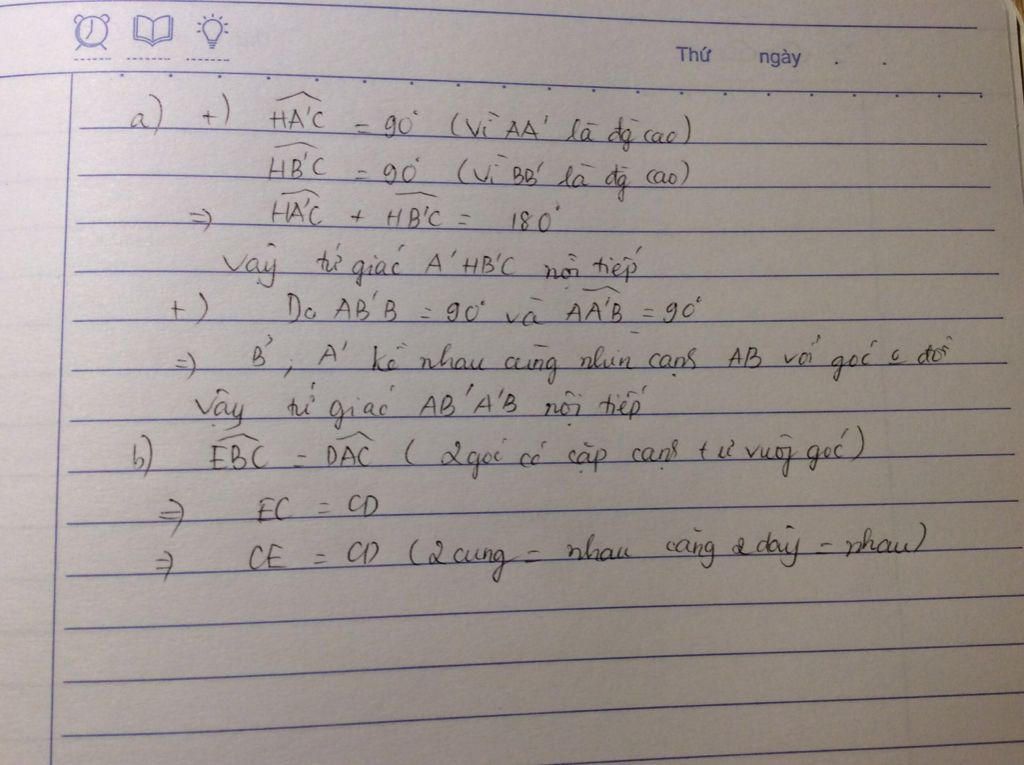 Thứ ngày . .
a) +) HA'C = 90° (Vì AA' là đg cao)
HB'C = 90° (Vì BB' là đg cao)
=> HA'C + HB'C = 180°
Vậy tứ giác A'HB'C nội tiếp
+) Do AB'B = 90° và AA'B = 90°
=> B', A' kề nhau cùng nhìn cạnh AB với góc đổi
Vậy tứ giác AB'A'B nội tiếp
b) EBC = DAC (2 góc có cặp cạnh tư vuôg góc)
=> EC = CD
=> CE = CD (2 cung = nhau căng 2 dây = nhau)